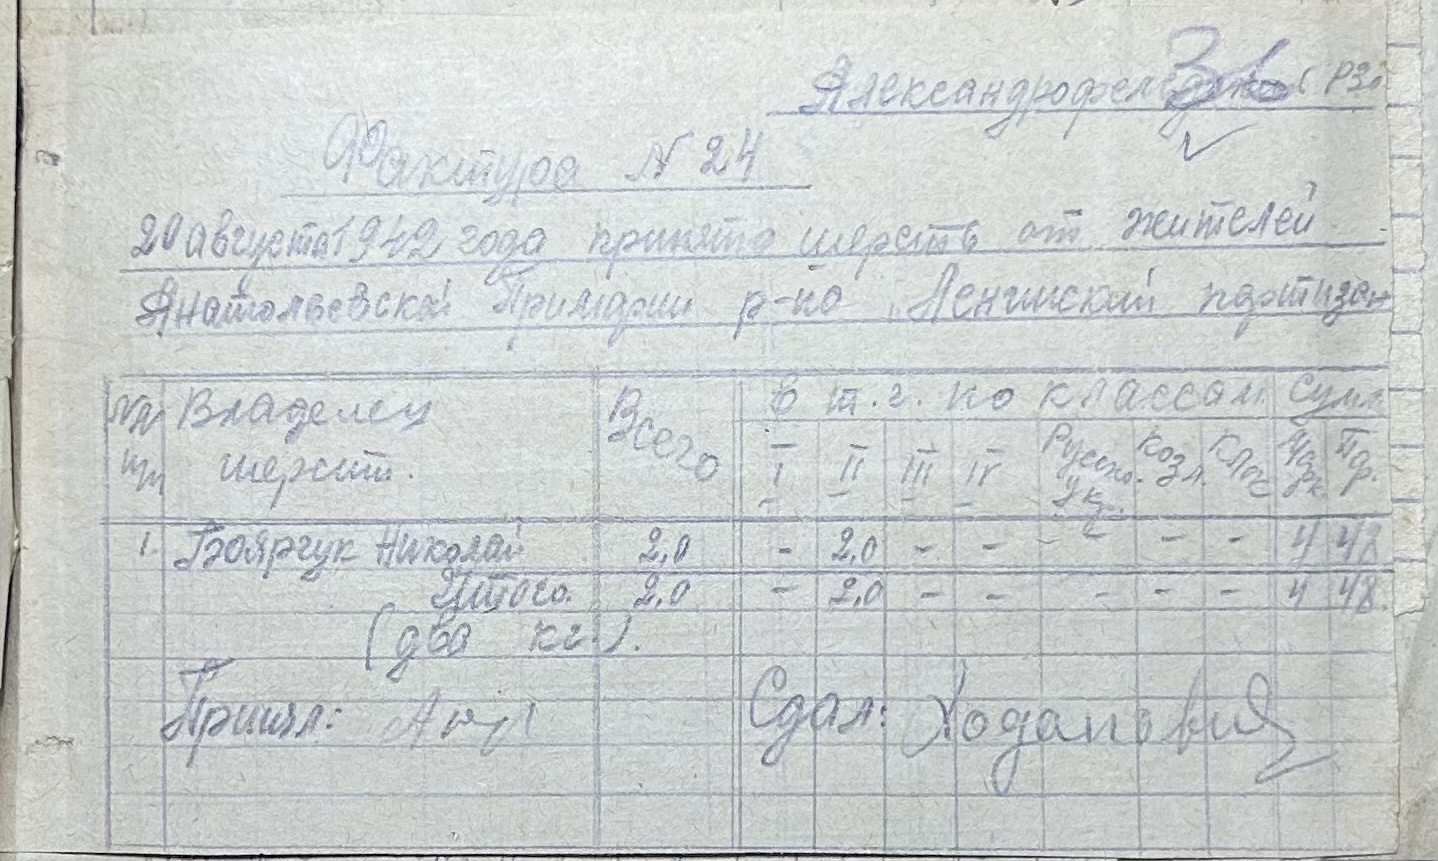 Александрофельд РЗ
Фактура N 24
20 августа 1942 года принято шерсть от жителей
Анатольевской Примэрии р-но "Ленинский партизан
Владелец Всего В т. ч. по классам Сум.
шерст. I II III IV Русско. Козл. Клас Марк Пф.
ук.
1. Боярчук Николай 2,0 - 2,0 - - - - - - 4 48
Итого. 2,0 - 2,0 - - - - - 4 48.
(два кг.).
Принял: Сдал: Ходанович